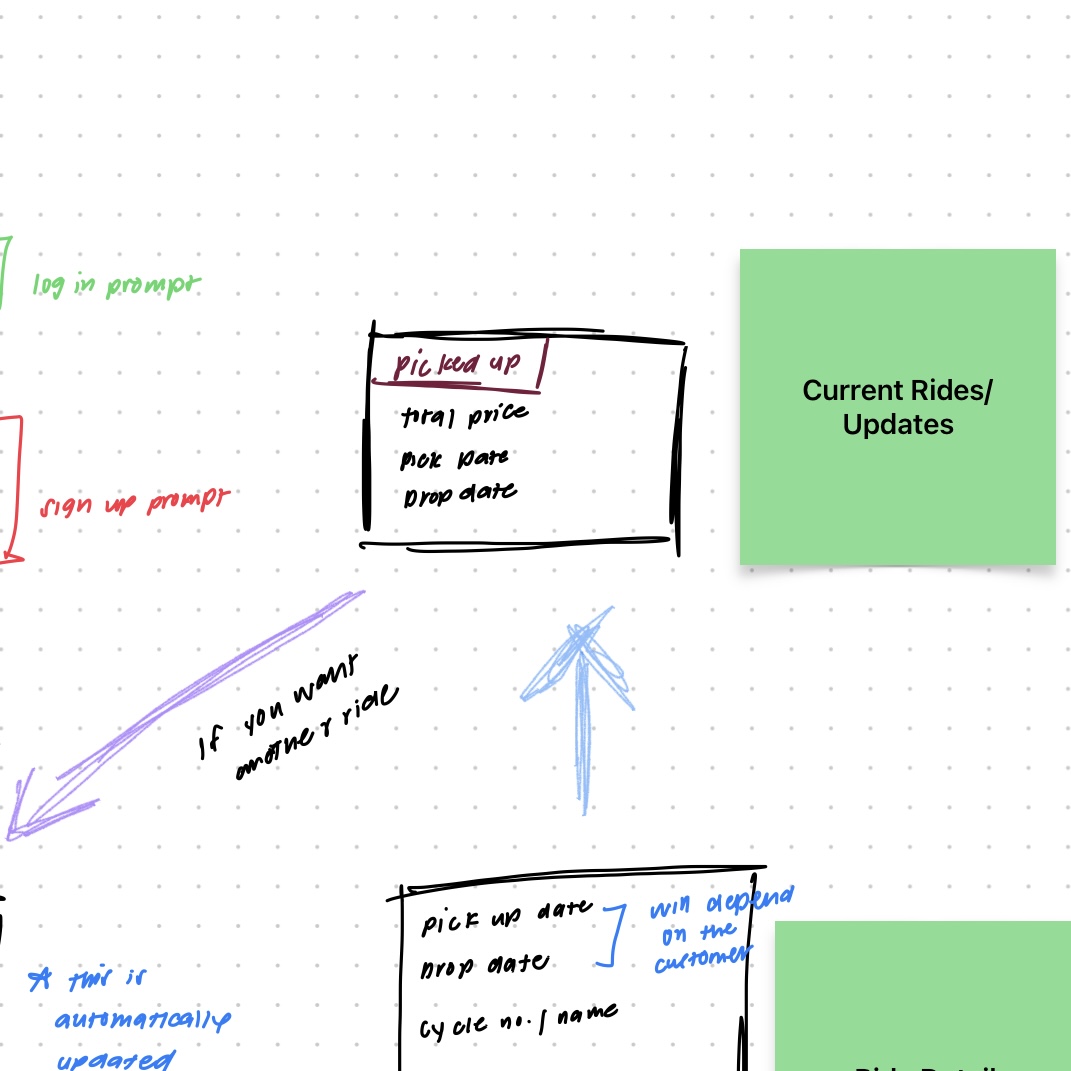 log in prompt
sign up prompt
picked up
total price
Pick Date
Drop date
Current Rides/
Updates
If you want
another ride
pick up date
Drop date
cycle no./ name
will depend
on the
customer
this is
automatically
updated